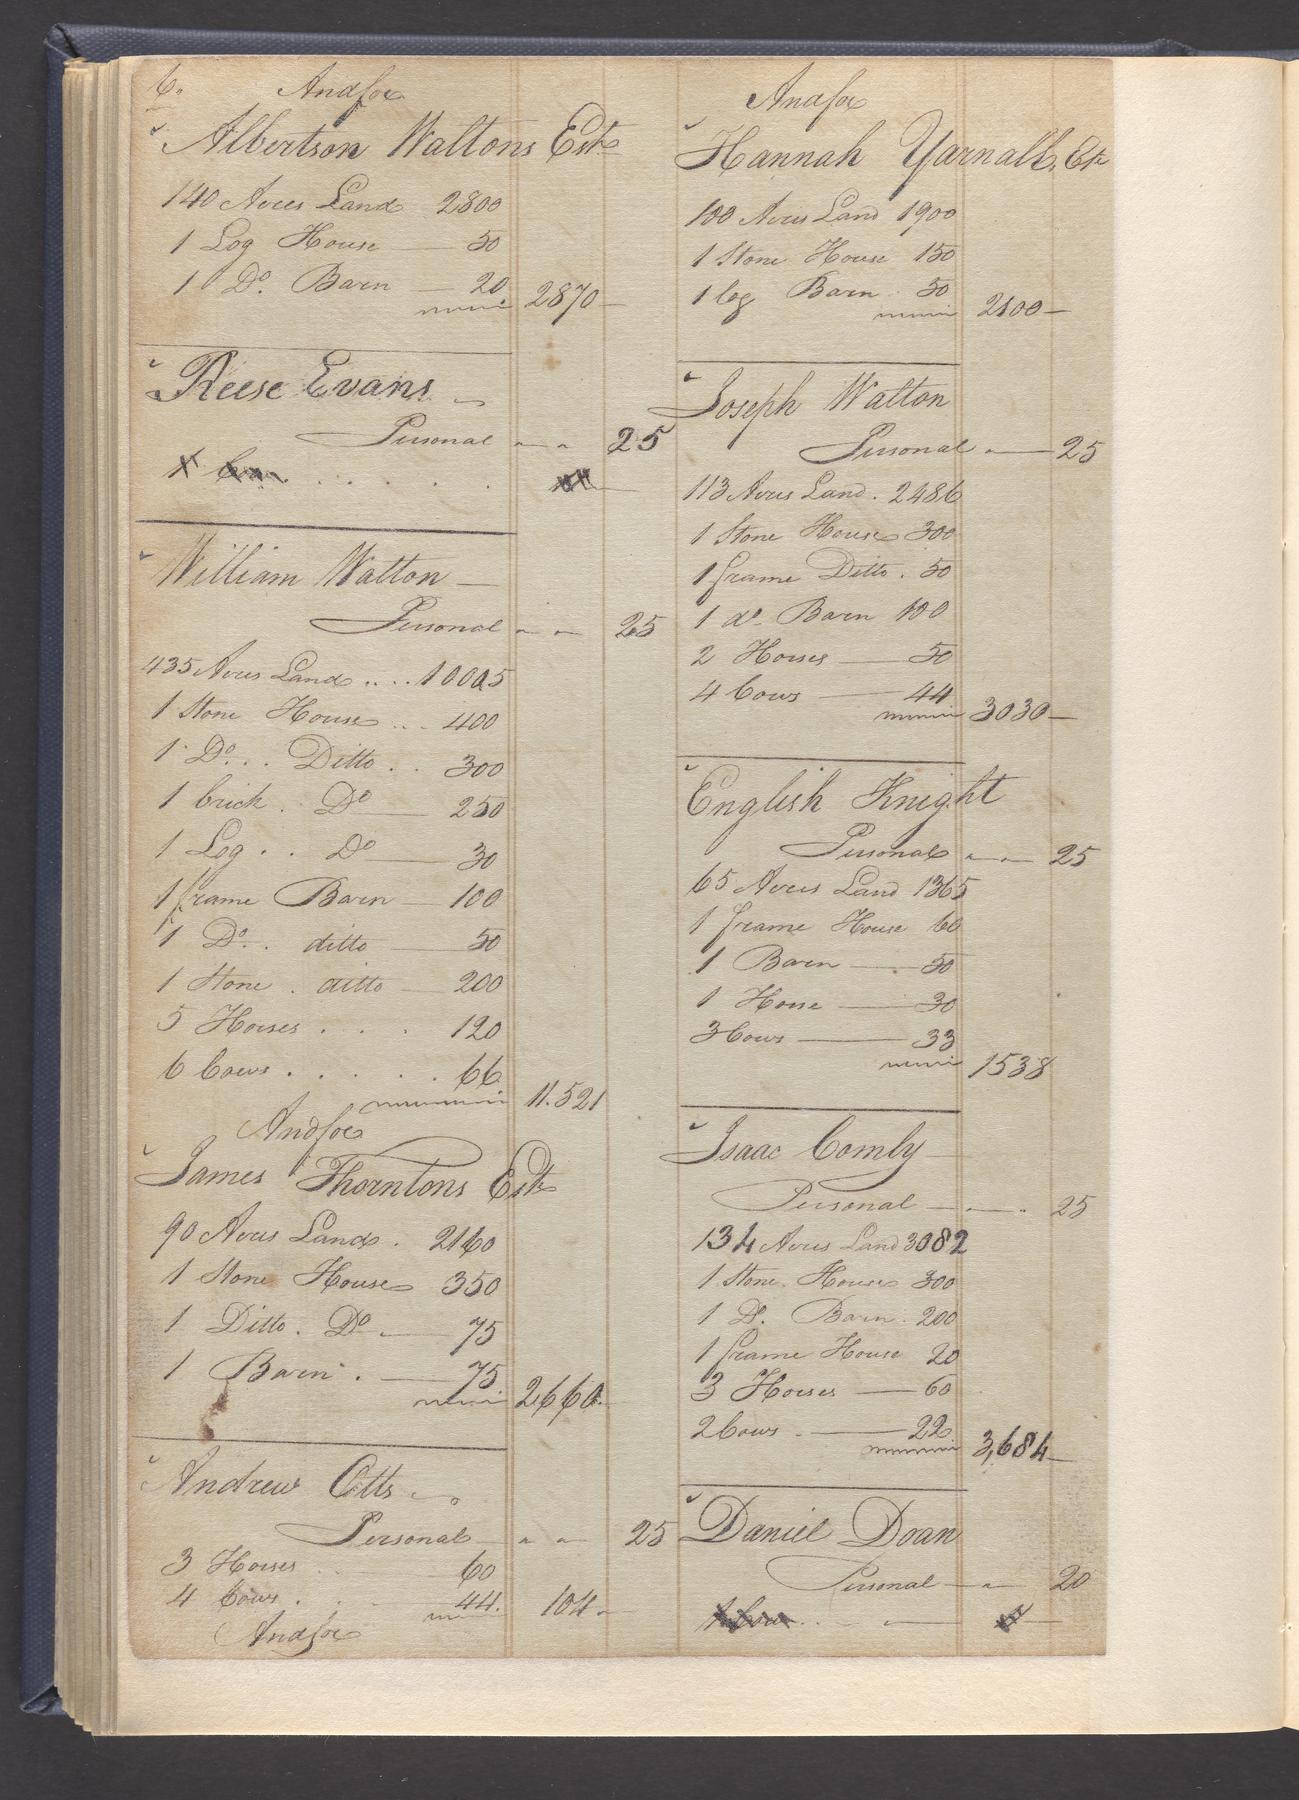 6. And for
Albertson Waltons Este
140 Acres Land 2800
1 Log House — 50
1 Do. Barn — 20 2870—
Reese Evans —
Personal 25
William Walton —
Personal 25
435 Acres Land .... 10005
1 Stone House ... 400
1 Do... Ditto .. 300
1 brick . Do — 250
1 Log .. Do — 30
1 frame Barn — 100
1 Do.. ditto — 50
1 Stone . ditto — 200
5 Horses . . . 120
6 Cows . . . . . 66 11.521
And for
James Thorntons Este
90 Acres Land . 2160
1 Stone House 350
1 Ditto. Do — 75
1 Barn . — 75 2660
Andrew Otts —
Personal 25
3 Horses .. 60
4 Cows . . 44. 104—
And for
And for
Hannah Yarnalls, Este
100 Acres Land 1900
1 Stone House 150
1 log Barn 50 2100—
Joseph Walton
Personal — 25
113 Acres Land . 2486
1 Stone House 300
1 frame Ditto . 50
1 do. Barn 100
2 Horses — 50
4 Cows — 44 3030—
English Knight
Personal 25
65 Acres Land 1365
1 frame House 60
1 Barn — 50
1 Horse — 30
3 Cows — 33 1538
Isaac Comly
Personal 25
134 Acres Land 3082
1 Stone House 300
1 Do. Barn . 200
1 frame House 20
3 Horses — 60
2 Cows . — 22 3,684—
Daniel Doan
Personal 20